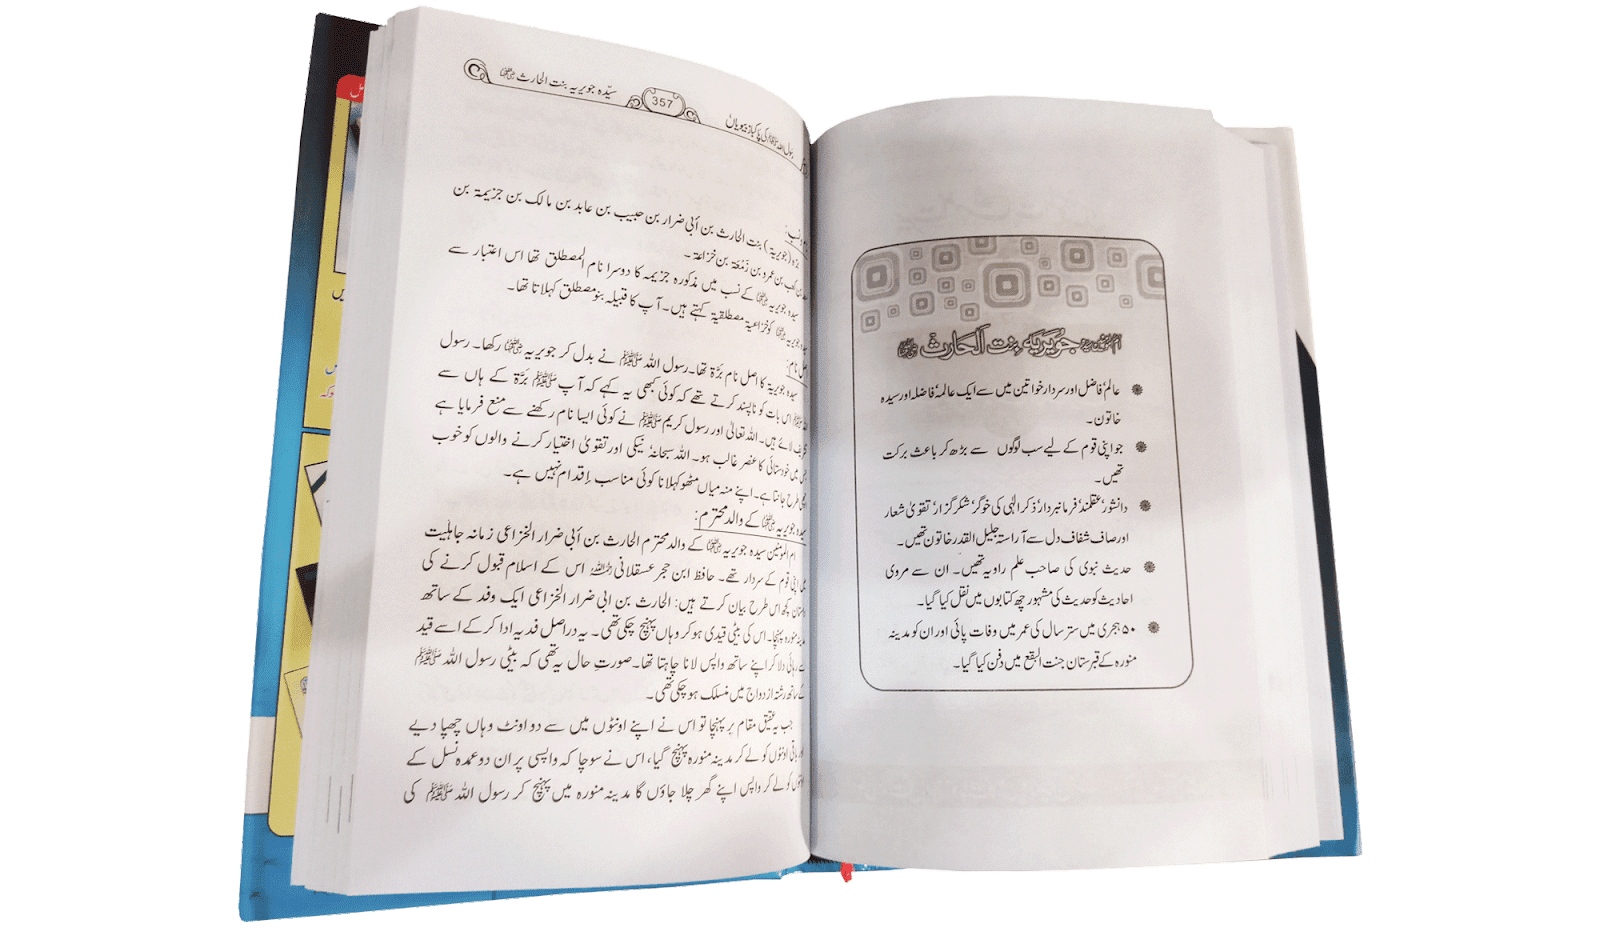 ام المؤمنین سیدہ جویریہ بنت الحارث رضی اللہ عنہا
عالم‘ فاضل اور سردار خواتین میں سے ایک عالمہ‘ فاضلہ اور سیدہ
خاتون۔
جو اپنی قوم کے لیے سب لوگوں سے بڑھ کر باعث برکت
تھیں۔
دانشور‘ عقلمند‘ فرمانبردار‘ ذکر الٰہی کی خوگر‘ شکر گزار‘ تقویٰ شعار
اور صاف شفاف دل سے آراستہ جلیل القدر خاتون تھیں۔
حدیث نبوی کی صاحب علم راویہ تھیں۔ ان سے مروی
احادیث کو حدیث کی مشہور چھ کتابوں میں نقل کیا گیا۔
۵۰ ہجری میں ستر سال کی عمر میں وفات پائی اور ان کو مدینہ
منورہ کے قبرستان جنت البقع میں دفن کیا گیا۔
رسول اللہ ﷺ کی پاکباز بیویاں
357
سیّدہ جویریہ بنت الحارث رضی اللہ عنہا
برّہ (جویریۃ) بنت الحارث بن أبی ضرار بن حبیب بن عابد بن مالک بن جزیمۃ بن
بن کعب بن عمرو بن زَمْعَۃ بن خزاعۃ۔
سیدہ جویریہ رضی اللہ عنہا کے نسب میں مذکورہ جزیمہ کا دوسرا نام المصطلق تھا اس اعتبار سے
سیدہ جویریہ رضی اللہ عنہا کو خزاعیۃ مصطلقیۃ کہتے ہیں۔ آپ کا قبیلہ بنو مصطلق کہلاتا تھا۔
نام:
سیدہ جویریۃ کا اصل نام برَّۃ تھا۔ رسول اللہ ﷺ نے بدل کر جویریہ رضی اللہ عنہا رکھا۔ رسول
اللہ ﷺ اس بات کو ناپسند کرتے تھے کہ کوئی کبھی یہ کہے کہ آپ ﷺ برَّۃ کے ہاں سے
لائے ہیں۔ اللہ تعالیٰ اور رسول کریم ﷺ نے کوئی ایسا نام رکھنے سے منع فرمایا ہے
میں خودستائی کا عنصر غالب ہو۔ اللہ سبحانہٗ نیکی اور تقویٰ اختیار کرنے والوں کو خوب
طرح جانتا ہے۔ اپنے منہ میاں مٹھو کہلانا کوئی مناسب اِقدام نہیں ہے۔
سیدہ جویریہ رضی اللہ عنہا کے والد محترم:
ام المومنین سیدہ جویریہ رضی اللہ عنہا کے والد محترم الحارث بن أبی ضرار الخزاعی زمانہ جاہلیت
اپنی قوم کے سردار تھے۔ حافظ ابن حجر عسقلانی رحمہ اللہ اس کے اسلام قبول کرنے کی
داستان کچھ اس طرح بیان کرتے ہیں: الحارث بن ابی ضرار الخزاعی ایک وفد کے ساتھ
مدینہ منورہ پہنچا۔ اس کی بیٹی قیدی ہو کر وہاں پہنچ چکی تھی۔ یہ دراصل فدیہ ادا کر کے اسے قید
سے رہائی دلا کر اپنے ساتھ واپس لانا چاہتا تھا۔ صورتِ حال یہ تھی کہ بیٹی رسول اللہ ﷺ
کے ساتھ رشتہ ازدواج میں منسلک ہو چکی تھی۔
جب یہ عقیق مقام پر پہنچا تو اس نے اپنے اونٹوں میں سے دو اونٹ وہاں چھپا دیے
اور باقی اونٹوں کو لے کر مدینہ منورہ پہنچ گیا، اس نے سوچا کہ واپسی پر ان دو عمدہ نسل کے
اونٹوں کو لے کر واپس اپنے گھر چلا جاؤں گا مدینہ منورہ میں پہنچ کر رسول اللہ ﷺ کی